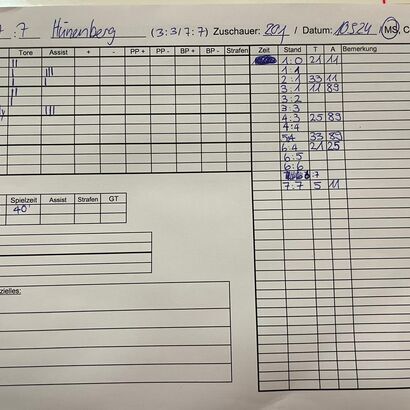 : 7 Hünenberg (3:3/7:7) Zuschauer: 201 / Datum: / MS, C
Tore Assist + - PP + PP - BP + BP - Strafen Zeit Stand T A Bemerkung
II 1:0 21 11
I III 1:1
I 2:1 33 11
II 3:1 11 89
3:2
III 3:3
4:3 25 89
4:4
5:4 33 89
6:4 21 25
6:5
6:6
:7
7:7 5 11
Spielzeit Assist Strafen GT
40'
zielles: